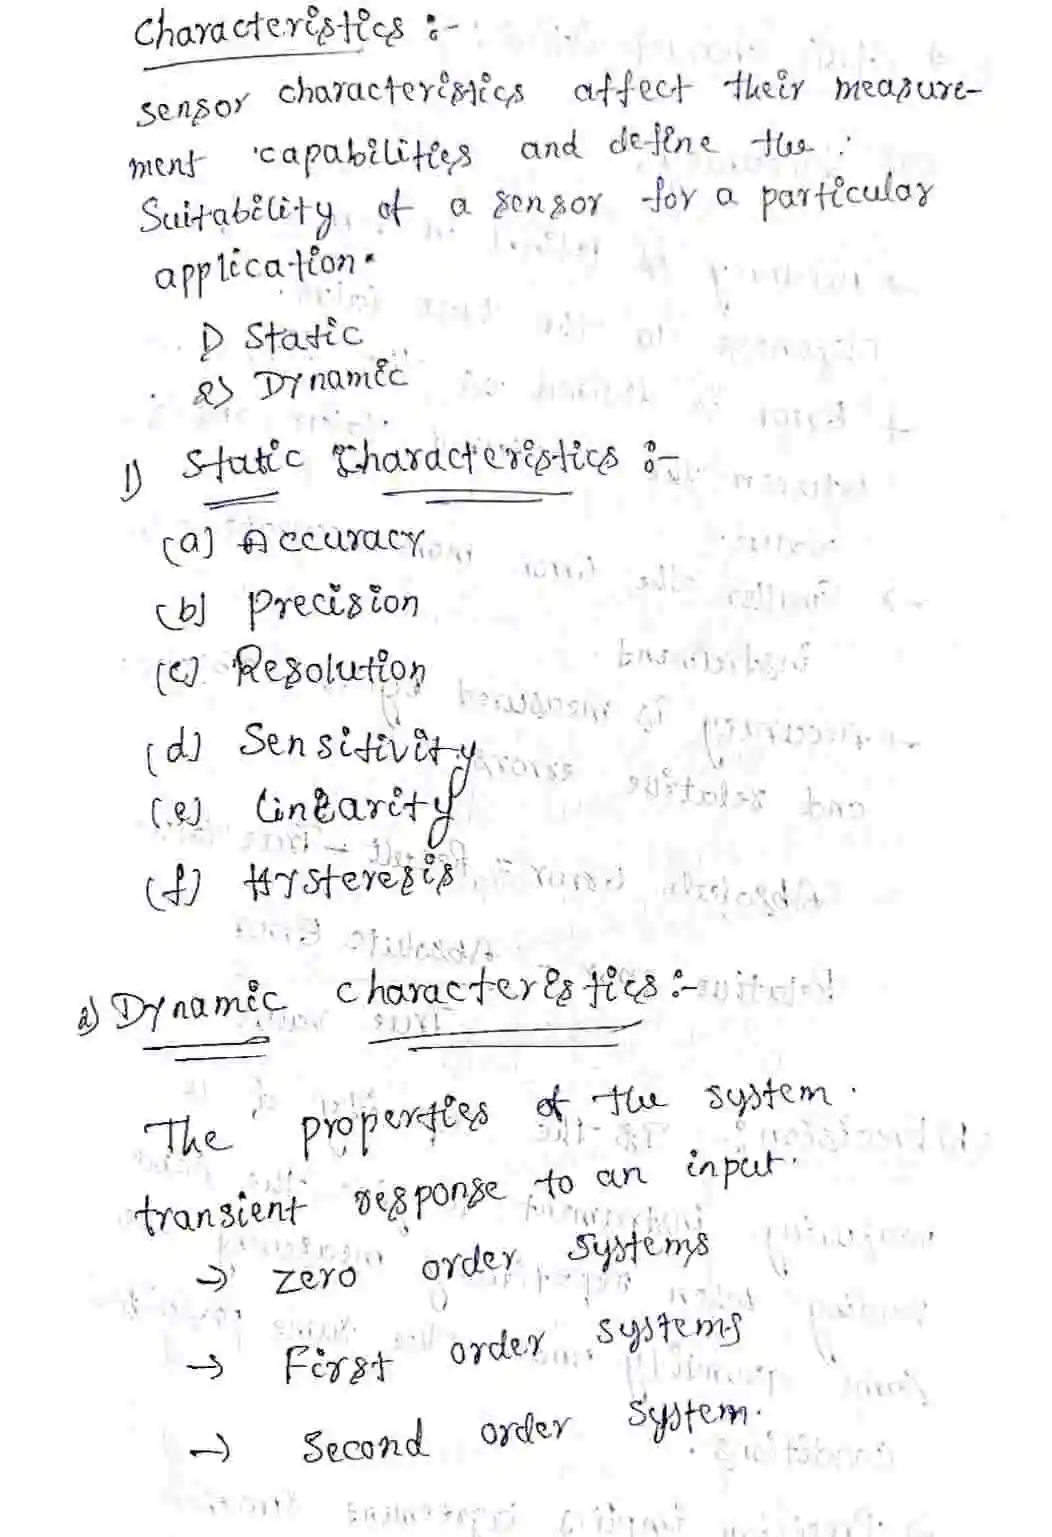 Characteristics :-
sensor characteristics affect their measure-
ment capabilities and define the
Suitability of a sensor for a particular
application.
1) Static
2) Dynamic
1) Static Characteristics :-
(a) Accuracy
(b) precision
(c) Resolution
(d) Sensitivity
(e) Linearity
(f) Hysteresis
2) Dynamic characteristics :-
The properties of the system
transient response to an input.
→ zero order systems
→ First order systems
→ Second order system.